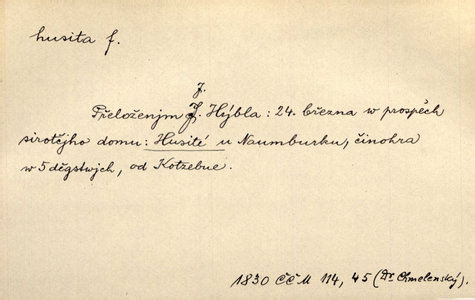 husita f.
J.
Přeloženjm J. Hýbla: 24. března w prospěch
sirotčjho domu: Husité u Naumburku, činohra
w 5 děgstwjch, od Kotzebue.
1830 ČČM 114, 45 (Dr Chmelenský).